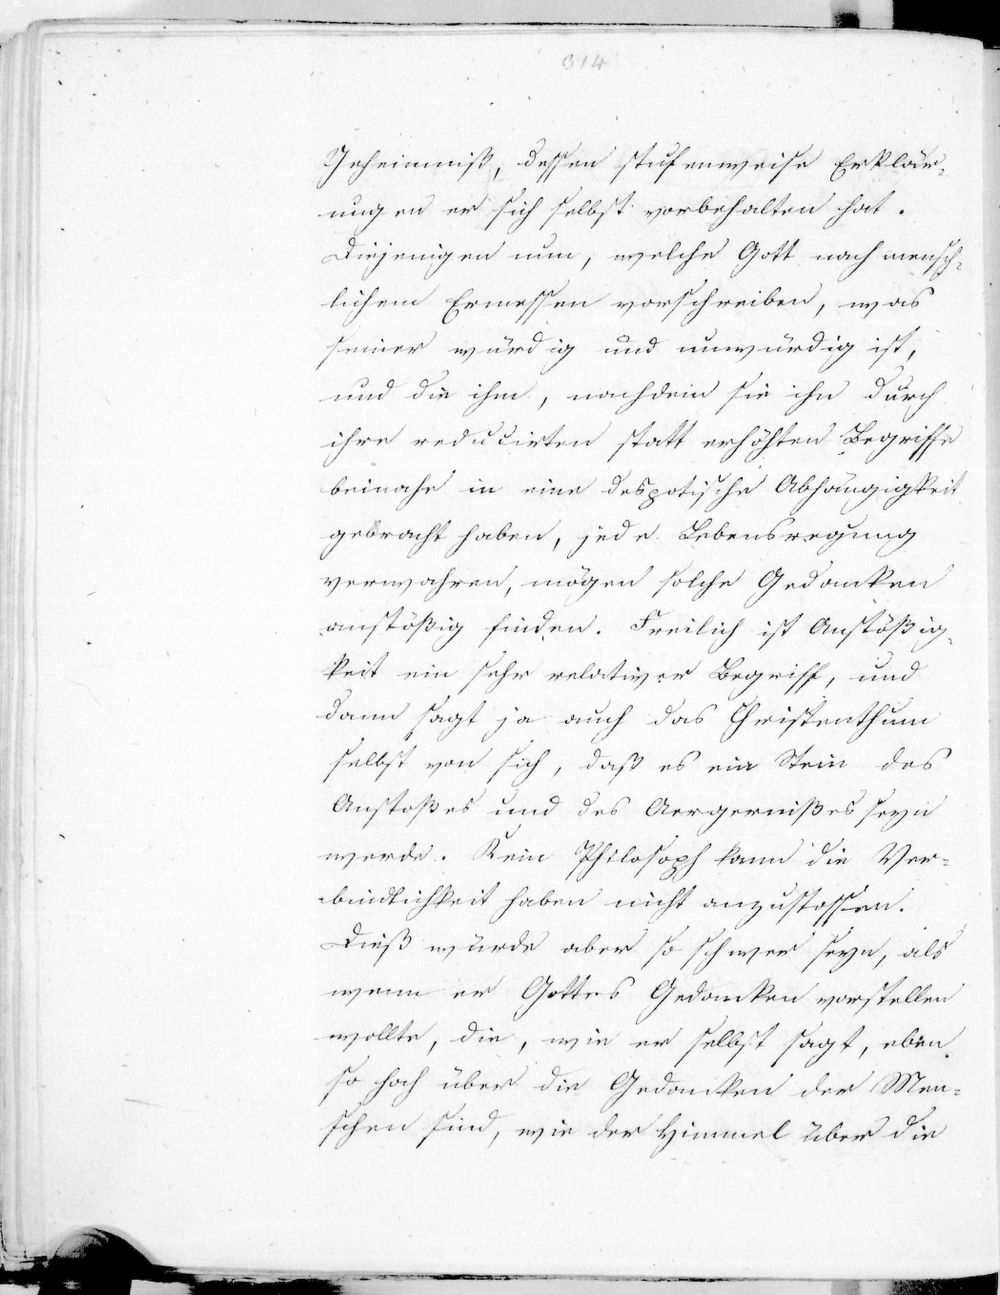 314
Geheimniß, dessen stufenweise Erklär-
ungen er sich selbst vorbehalten hat.
Diejenigen nun, welche Gott nach mensch-
lichem Ermessen vorschreiben, was
seiner würdig und unwürdig ist,
und die ihm, nachdem sie ihn durch
ihre reducirten statt erhöhten Begriffe
beinahe in eine despotische Abhängigkeit
gebracht haben, jede Lebensregung
verwahren, mögen solche Gedanken
anstößig finden. Freilich ist Anstößig-
keit ein sehr relativer Begriff, und
dann sagt ja auch das Christenthum
selbst von sich, daß es ein Stein des
Anstoßes und des Aergernißes seyn
werde. Kein Philosoph kann die Ver-
bindlichkeit haben nicht anzustossen.
Dieß würde aber so schwer seyn, als
wenn er Gottes Gedanken vorstellen
wollte, die, wie er selbst sagt, eben
so hoch über die Gedanken der Men-
schen sind, wie der Himmel über die